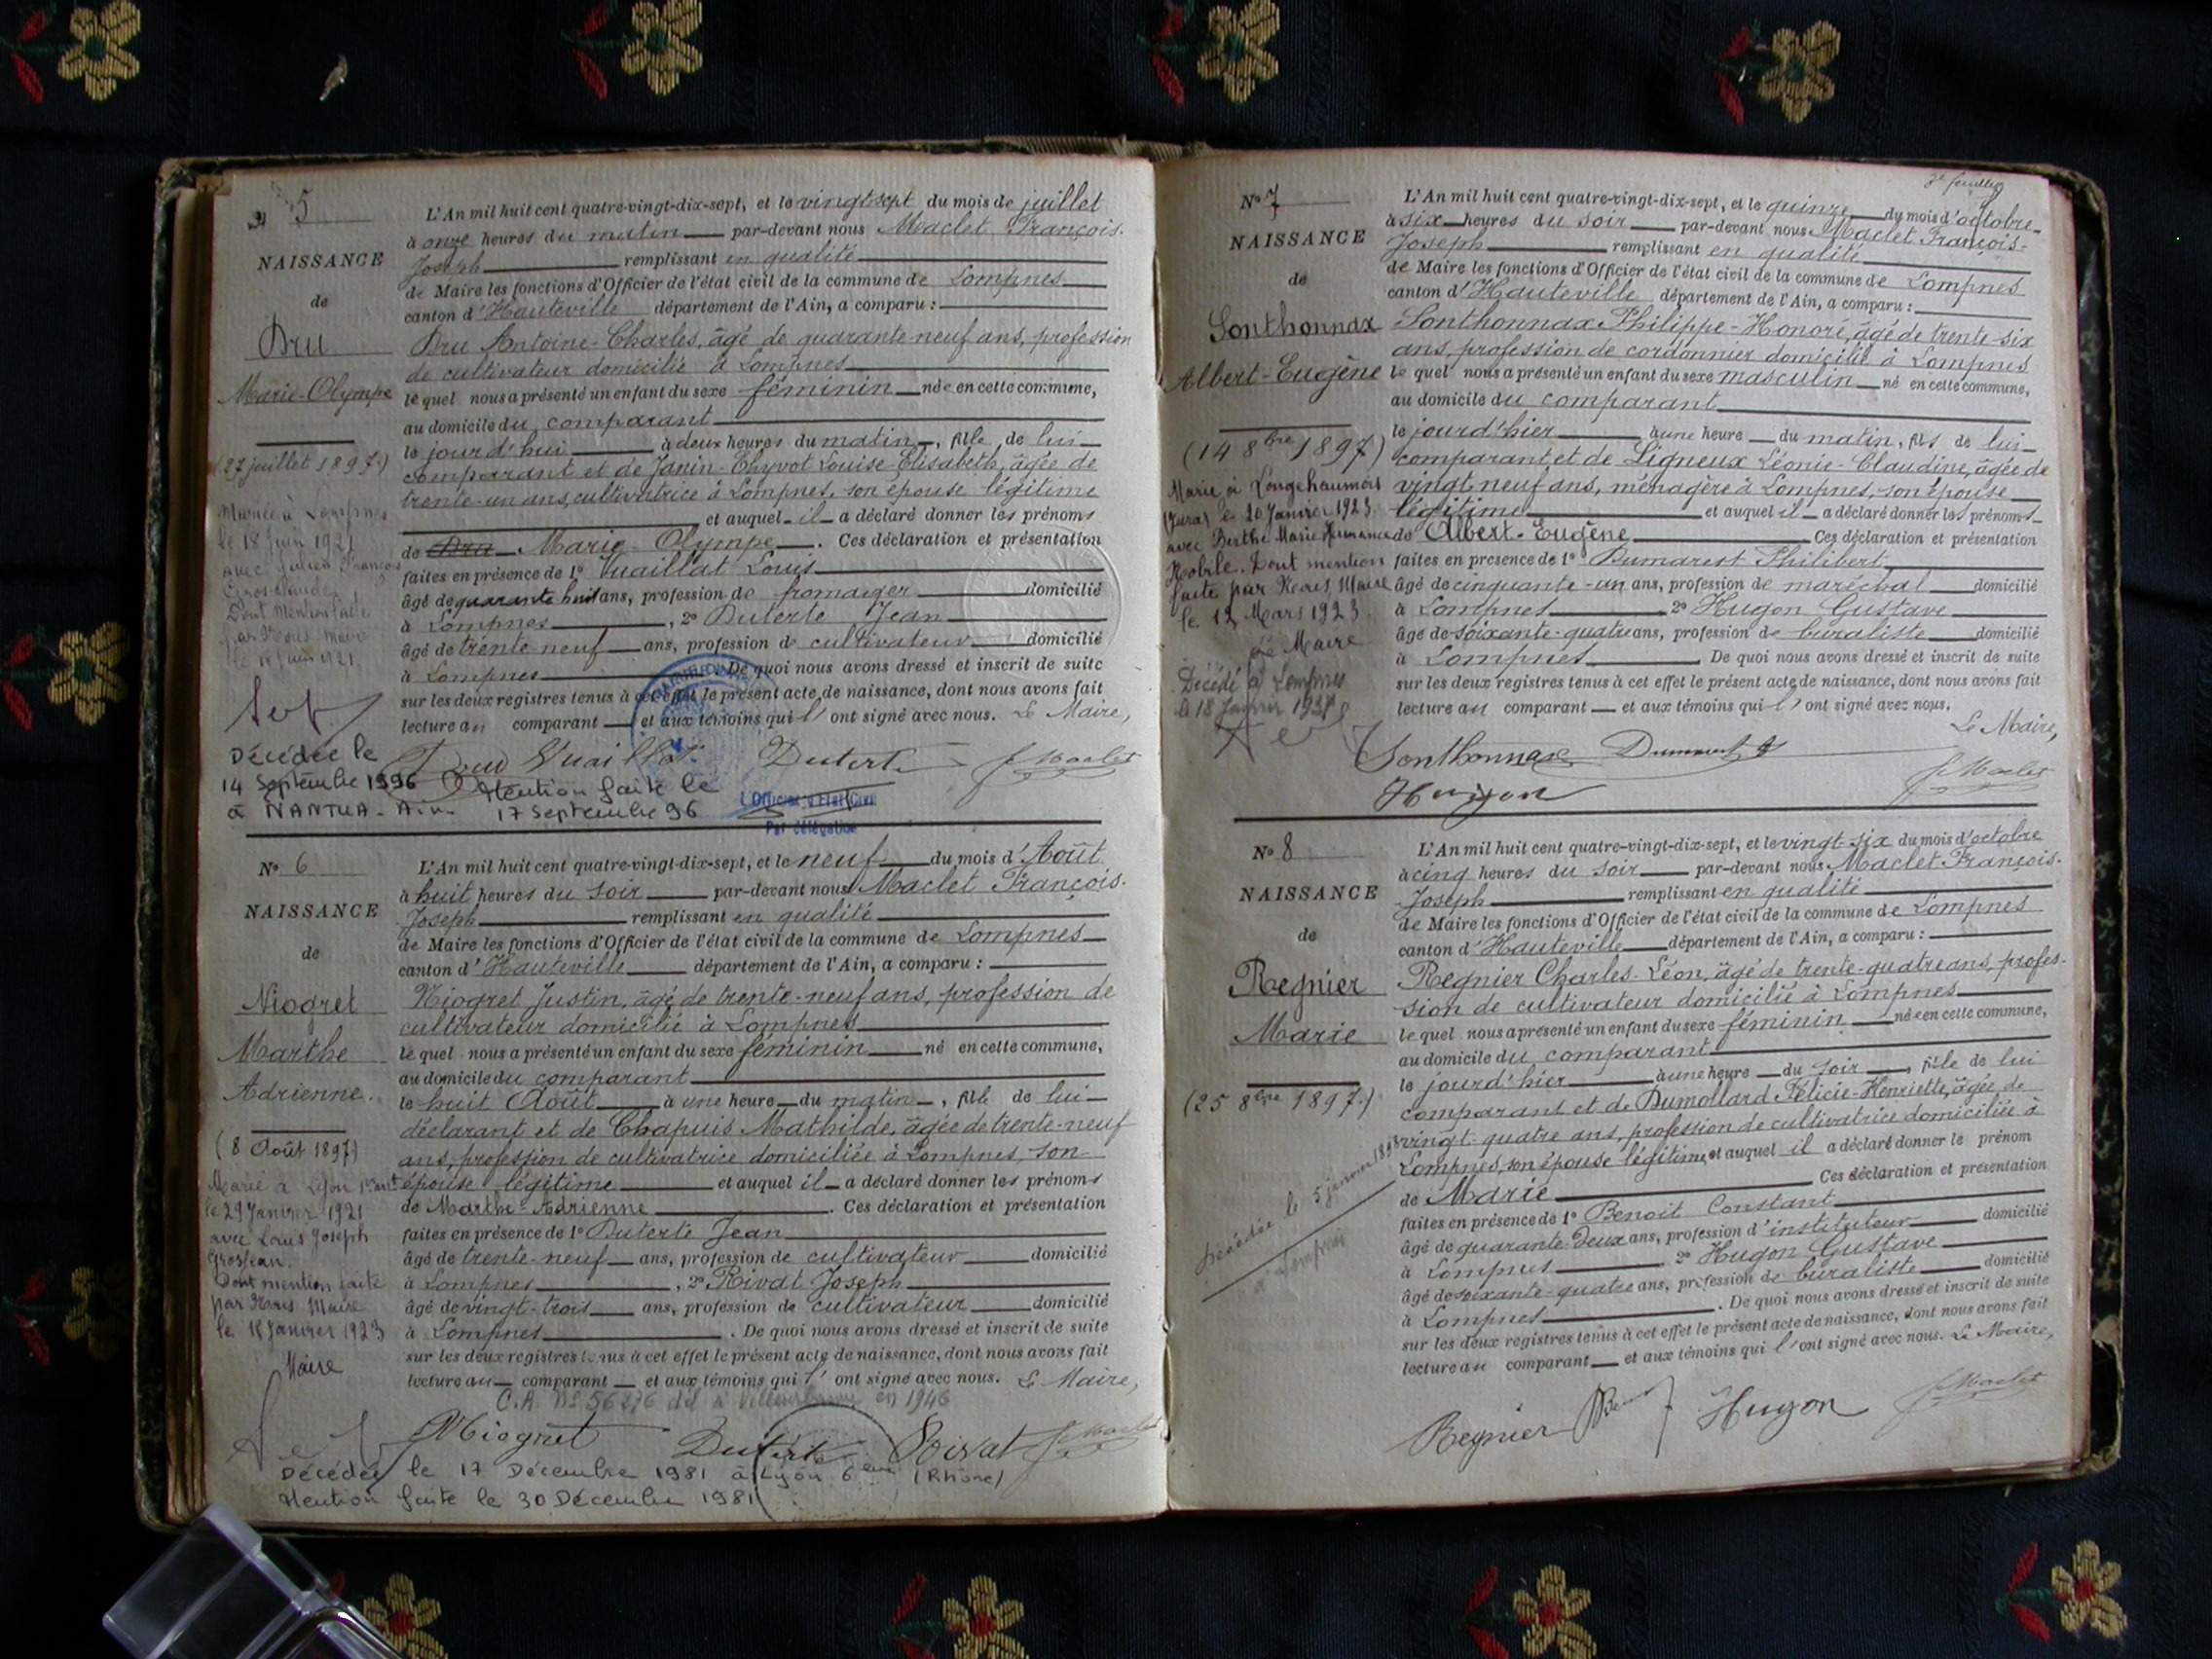 5
NAISSANCE
de
Dru
Marie-Olympe
(27 juillet 1897.)
Mariée à Lompnes
le 18 juin 1921
avec Julien François
Dont mention faite
par Nous Maire
le 18 juin 1921
Décédée le
14 Septembre 1996
à NANTUA - Ain -
Mention faite le
17 Septembre 96
L'An mil huit cent quatre-vingt-dix-sept, et le vingt sept du mois de juillet
à onze heures du matin par-devant nous Maclet François-
Joseph remplissant en qualité
de Maire les fonctions d'Officier de l'état civil de la commune de Lompnes
canton d'Hauteville département de l'Ain, a comparu :
Dru Antoine-Charles, âgé de quarante neuf ans, profession
de cultivateur domicilié à Lompnes
lequel nous a présenté un enfant du sexe féminin née en cette commune,
au domicile du comparant
le jourd'hui à deux heures du matin, fille de lui
comparant et de Janin-Thyvot Louise-Elisabeth, âgée de
trente-un ans, cultivatrice à Lompnes, son épouse légitime
et auquel il a déclaré donner les prénoms
de Dru Marie-Olympe. Ces déclaration et présentation
faites en présence de 1° Vuaillat Louis
âgé de quarante huit ans, profession de fromager domicilié
à Lompnes, 2° Duterte Jean
âgé de trente neuf ans, profession de cultivateur domicilié
à Lompnes De quoi nous avons dressé et inscrit de suite
sur les deux registres tenus à cet effet le présent acte de naissance, dont nous avons fait
lecture au comparant et aux témoins qui l'ont signé avec nous. Le Maire,
Dru Vuaillat Duterte J. Maclet
L'Officier d'Etat Civil
Par délégation
N° 6
NAISSANCE
de
Niogret
Marthe
Adrienne.
(8 Août 1897)
Marié à Lyon
le 29 Janvier 1921
avec Louis Joseph
Grosjean.
Dont mention faite
par Nous Maire
le 18 Janvier 1923
Maire
L'An mil huit cent quatre-vingt-dix-sept, et le neuf du mois d'Août
à huit heures du soir par-devant nous Maclet François-
Joseph remplissant en qualité
de Maire les fonctions d'Officier de l'état civil de la commune de Lompnes
canton d'Hauteville département de l'Ain, a comparu :
Niogret Justin, âgé de trente-neuf ans, profession de
cultivateur domicilié à Lompnes
lequel nous a présenté un enfant du sexe féminin né en cette commune,
au domicile du comparant
le huit Août à une heure du matin, fille de lui
déclarant et de Chapuis Mathilde, âgée de trente-neuf
ans, profession de cultivatrice domiciliée à Lompnes, son
épouse légitime et auquel il a déclaré donner les prénoms
de Marthe-Adrienne. Ces déclaration et présentation
faites en présence de 1° Duterte Jean
âgé de trente-neuf ans, profession de cultivateur domicilié
à Lompnes, 2° Rivat Joseph
âgé de vingt-trois ans, profession de cultivateur domicilié
à Lompnes. De quoi nous avons dressé et inscrit de suite
sur les deux registres tenus à cet effet le présent acte de naissance, dont nous avons fait
lecture au comparant et aux témoins qui l'ont signé avec nous. Le Maire,
C.A. N° 56276 dél à Villeurbanne en 1946
Niogret Duterte Rivat J. Maclet
Décédée le 17 Décembre 1981 à Lyon 6ème (Rhône)
Mention faite le 30 Décembre 1981
3e feuillet
N° 7
NAISSANCE
de
Sonthonnax
Albert-Eugène
(14 8bre 1897)
Marié à Longchaumois
(Jura) le 20 Janvier 1923
avec Berthe Marie
Dont mention
faite par Nous, Maire
le 12 Mars 1923
Le Maire
Décédé à Lompnes
le 18 Janvier
L'An mil huit cent quatre-vingt-dix-sept, et le quinze du mois d'octobre
à six heures du soir par-devant nous Maclet François-
Joseph remplissant en qualité
de Maire les fonctions d'Officier de l'état civil de la commune de Lompnes
canton d'Hauteville département de l'Ain, a comparu :
Sonthonnax Philippe-Honoré, âgé de trente-six
ans, profession de cordonnier domicilié à Lompnes
lequel nous a présenté un enfant du sexe masculin né en cette commune,
au domicile du comparant
le jourd'hier à une heure du matin, fils de lui
comparant et de Ligneux Léonie-Claudine, âgée de
vingt neuf ans, ménagère à Lompnes, son épouse
légitime et auquel il a déclaré donner les prénoms
de Albert-Eugène Ces déclaration et présentation
faites en présence de 1° Dumarest Philibert
âgé de cinquante-un ans, profession de maréchal domicilié
à Lompnes 2° Hugon Gustave
âgé de soixante-quatre ans, profession de buraliste domicilié
à Lompnes. De quoi nous avons dressé et inscrit de suite
sur les deux registres tenus à cet effet le présent acte de naissance, dont nous avons fait
lecture au comparant et aux témoins qui l'ont signé avec nous.
Le Maire,
Sonthonnax Dumarest
Hugon J. Maclet
N° 8
NAISSANCE
de
Regnier
Marie
(25 8bre 1897.)
Décédée le 5 janvier
à Lompnes
L'An mil huit cent quatre-vingt-dix-sept, et le vingt-six du mois d'octobre
à cinq heures du soir par-devant nous Maclet François-
Joseph remplissant en qualité
de Maire les fonctions d'Officier de l'état civil de la commune de Lompnes
canton d'Hauteville département de l'Ain, a comparu :
Regnier Charles-Léon, âgé de trente-quatre ans, profes-
sion de cultivateur domicilié à Lompnes
lequel nous a présenté un enfant du sexe féminin née en cette commune,
au domicile du comparant
le jourd'hier à une heure du soir, fille de lui
comparant et de Dumollard Félicie-Henriette, âgée de
vingt-quatre ans, profession de cultivatrice domiciliée à
Lompnes, son épouse légitime et auquel il a déclaré donner le prénom
de Marie Ces déclaration et présentation
faites en présence de 1° Benoit Constant
âgé de quarante-deux ans, profession d'instituteur domicilié
à Lompnes 2° Hugon Gustave
âgé de soixante-quatre ans, profession de buraliste domicilié
à Lompnes. De quoi nous avons dressé et inscrit de suite
sur les deux registres tenus à cet effet le présent acte de naissance, dont nous avons fait
lecture au comparant et aux témoins qui l'ont signé avec nous. Le Maire,
Regnier Hugon J. Maclet